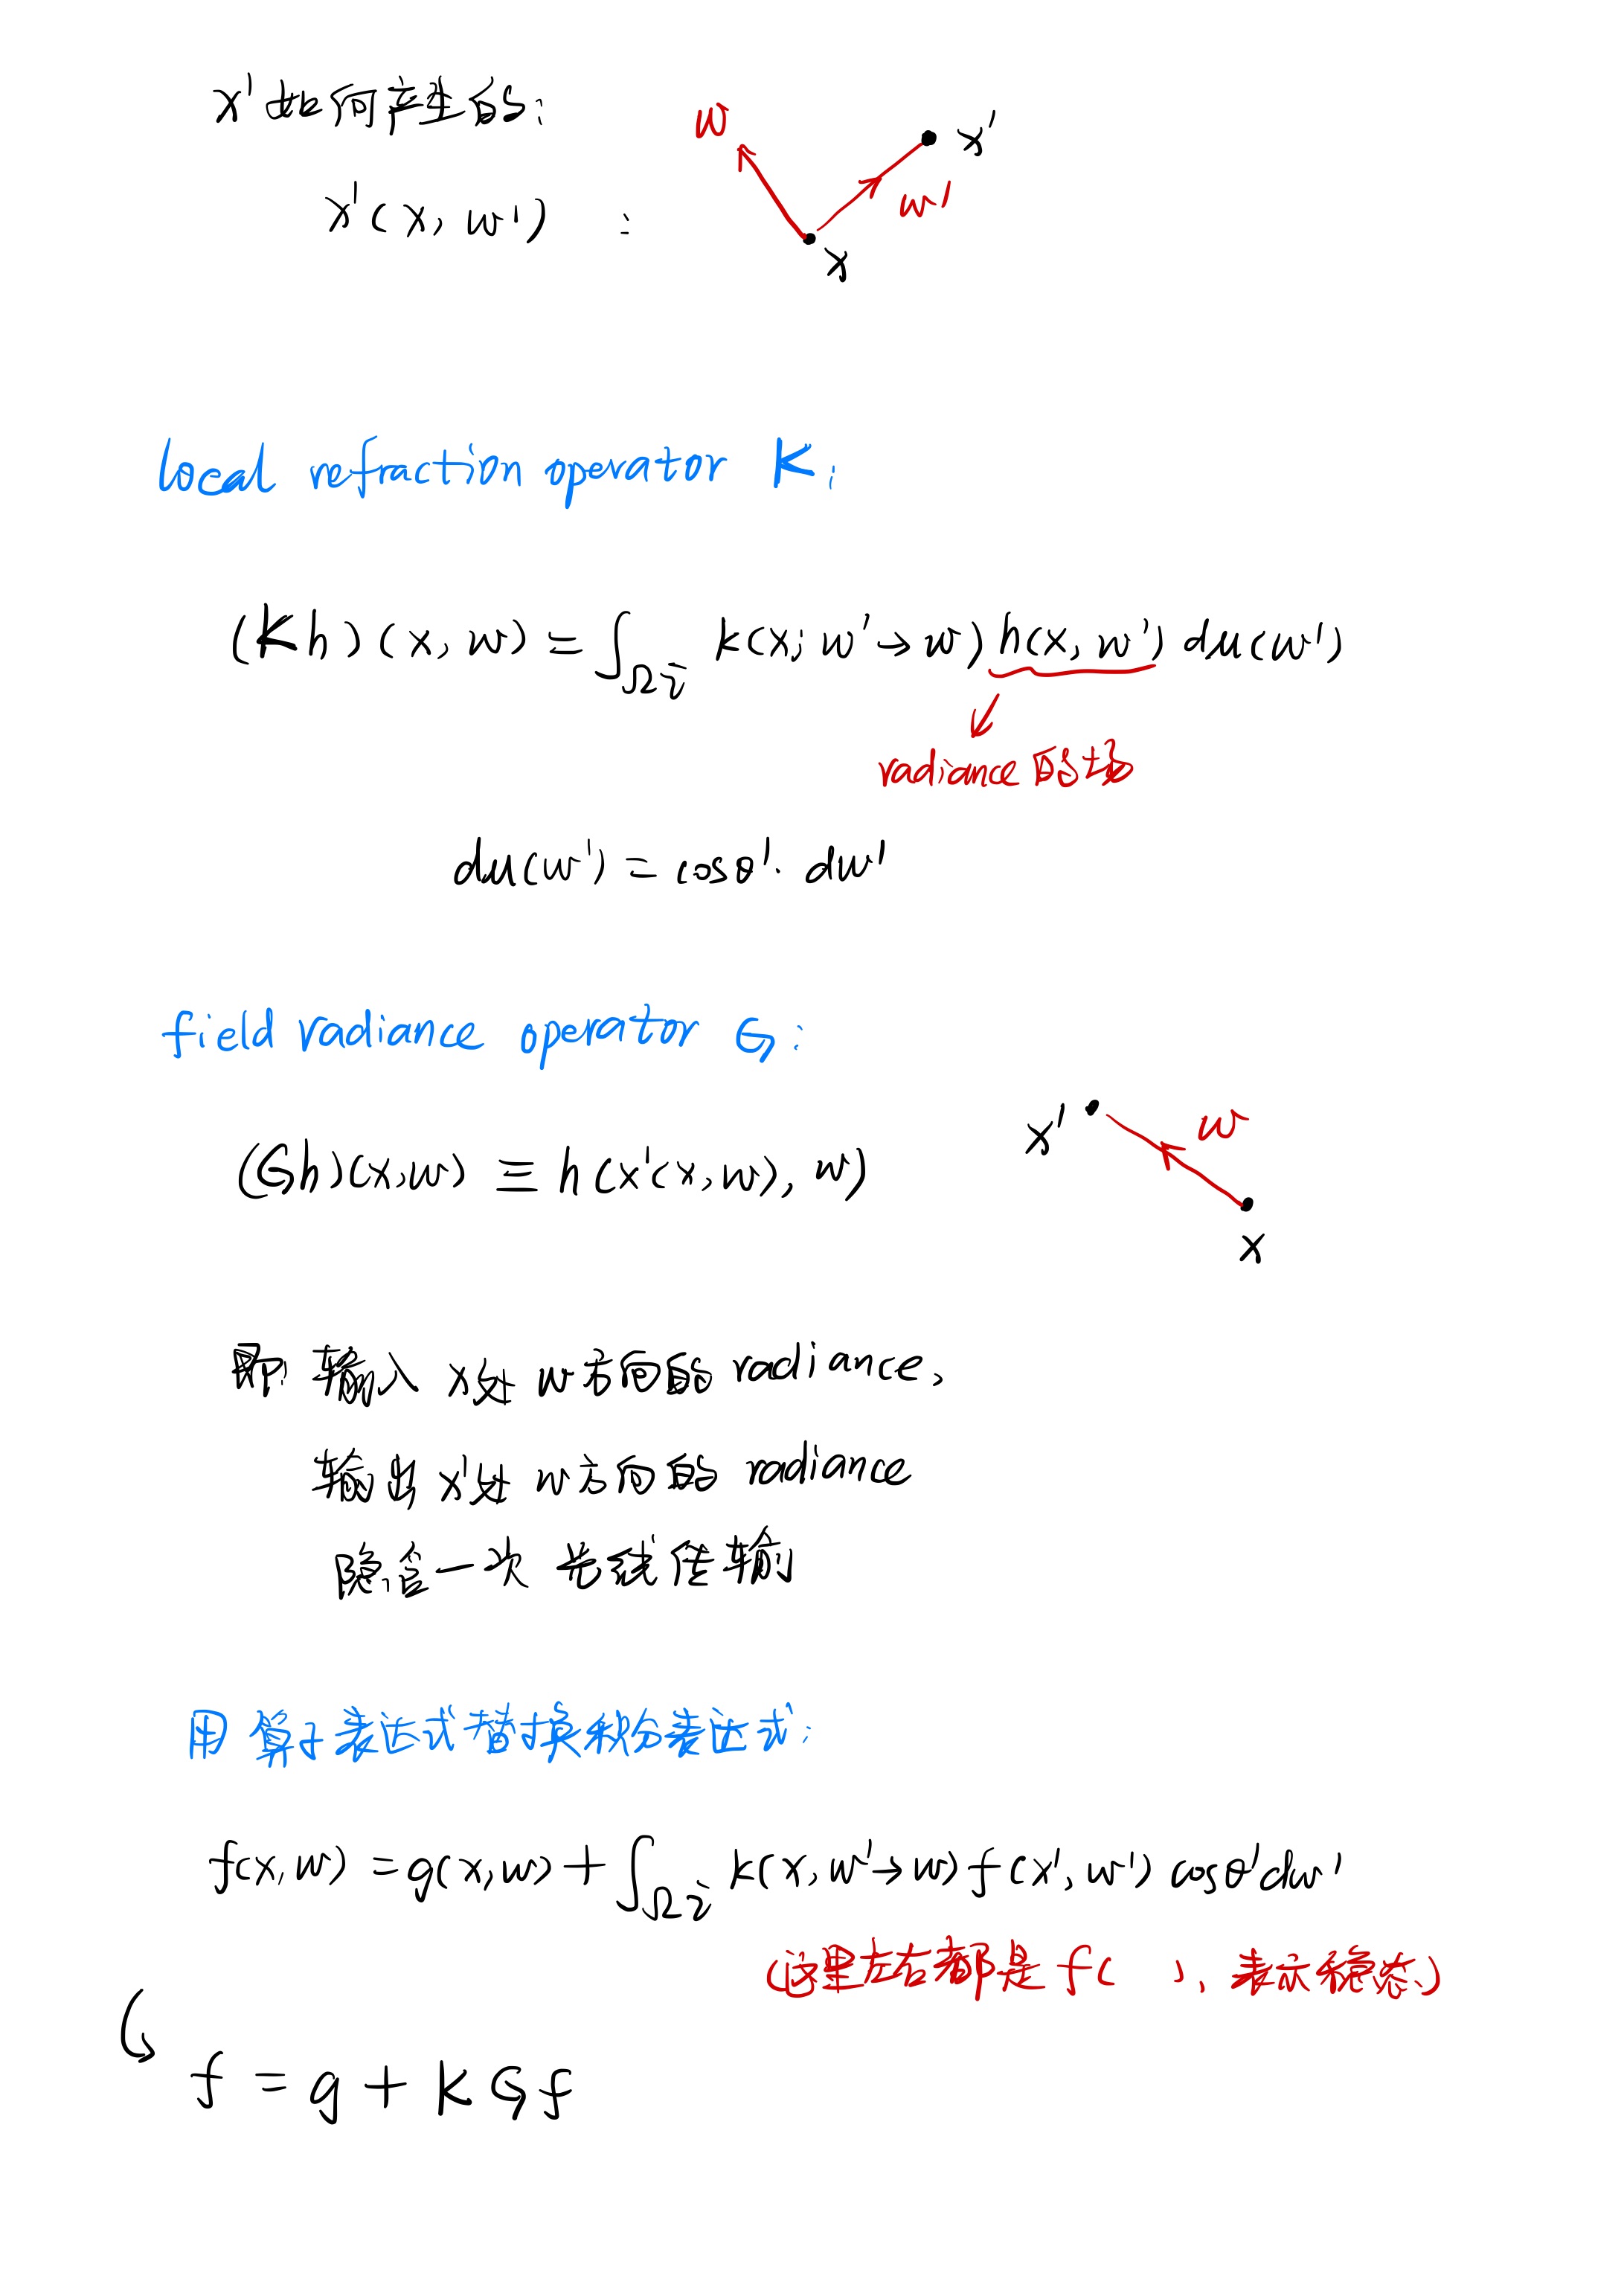 x' 如何产生的:
w
x'
x'(x, w') :
w'
x
local refraction operator K:
(Kh)(x, w) = ∫_Ωi k(x; w'→w) h(x, w') du(w')
radiance 的场
du(w') = cosθ'· dw'
field radiance operator G:
x'
w
(Gh)(x,w) ≡ h(x'(x,w), w)
x
即: 输入 x处 w方向的 radiance、
输出 x'处 w方向的 radiance
隐含一次 光线传输
用 算子表达式替换积分表达式:
f(x,w) = g(x,w) + ∫_Ωi k(x, w'→w) f(x', w') cosθ'dw'
(这里左右都是 f( )、表示稳态、)
f = g + K G f